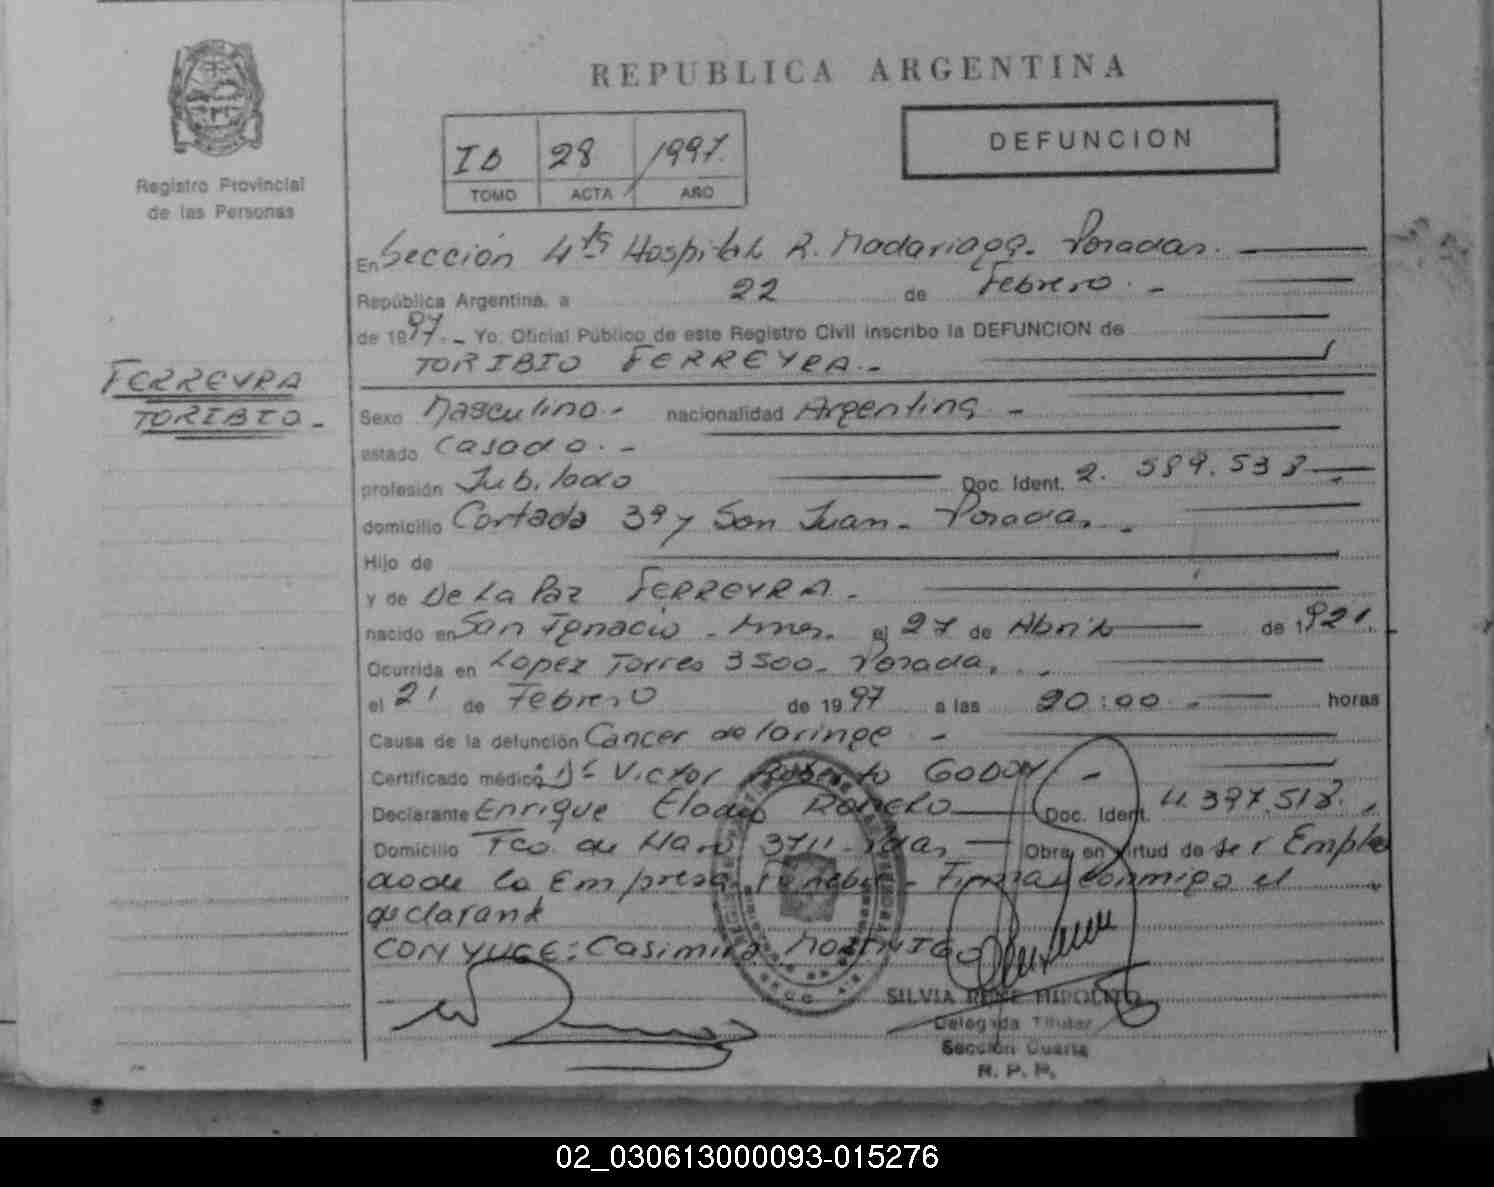 REPUBLICA ARGENTINA
DEFUNCION
Registro Provincial
de las Personas
ID 28 1997.
TOMO ACTA AÑO
En Sección 4ta Hospital R. Madariaga. Posadas.
República Argentina, a 22 de Febrero. -
de 1997.- Yo, Oficial Público de este Registro Civil inscribo la DEFUNCION de
TORIBIO FERREYRA.-
FERREYRA
TORIBIO.-
Sexo Masculino.- nacionalidad Argentina -
estado Casado.-
profesión Jubilado Doc. Ident. 2. 589.538
domicilio Cortada 39 y San Juan. Posadas. -
Hijo de
y de De La Paz FERREYRA.
nacido en San Ignacio - Mnes. el 27 de Abril de 1921.
Ocurrida en Lopez Torres 3500. Posadas. -
el 21 de Febrero de 1997 a las 20:00 - horas
Causa de la defunción Cancer de laringe -
Certificado médico Dr Victor Roberto GODOY -
Declarante Enrique Eladio ROMERO Doc. Ident. 4.397.518.
Domicilio Fco. de Haro 3711 - Pdas, Obra en virtud de ser Emplea
do de la Empresa Funebre - Firma conmigo el
declarante
CONYUGE: Casimira MORINIGO
SILVIA RENE HIPOLITO
Delegada Titular
Sección Cuarta
R. P. P.
02_030613000093-015276